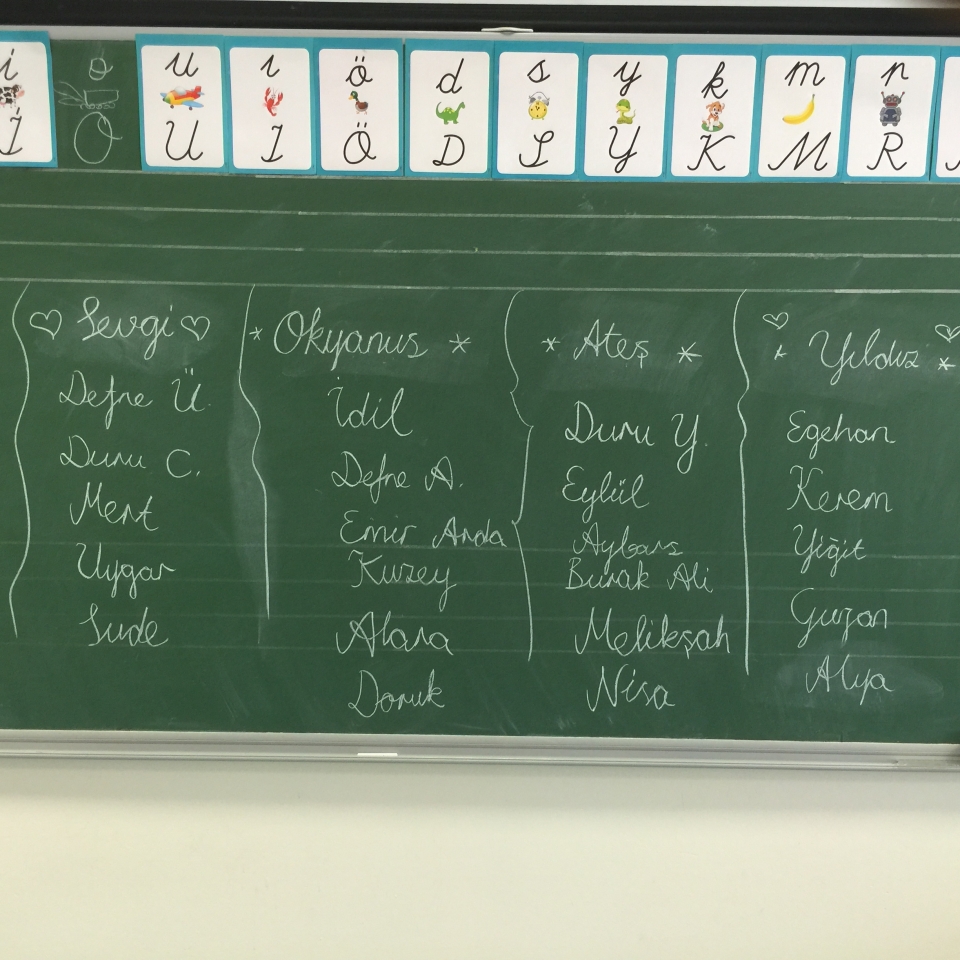 i
o
u
ı
ö
d
s
y
k
m
r
İ
O
U
I
Ö
D
S
Y
K
M
R
Sevgi
Defne Ü.
Duru C.
Mert
Uygar
Sude
* Okyanus *
İdil
Defne A.
Emir Arda
Kuzey
Alara
Doruk
* Ateş *
Duru Y.
Eylül
Aybars
Burak Ali
Melikşah
Nisa
* Yıldız *
Egehan
Kerem
Yiğit
Alya